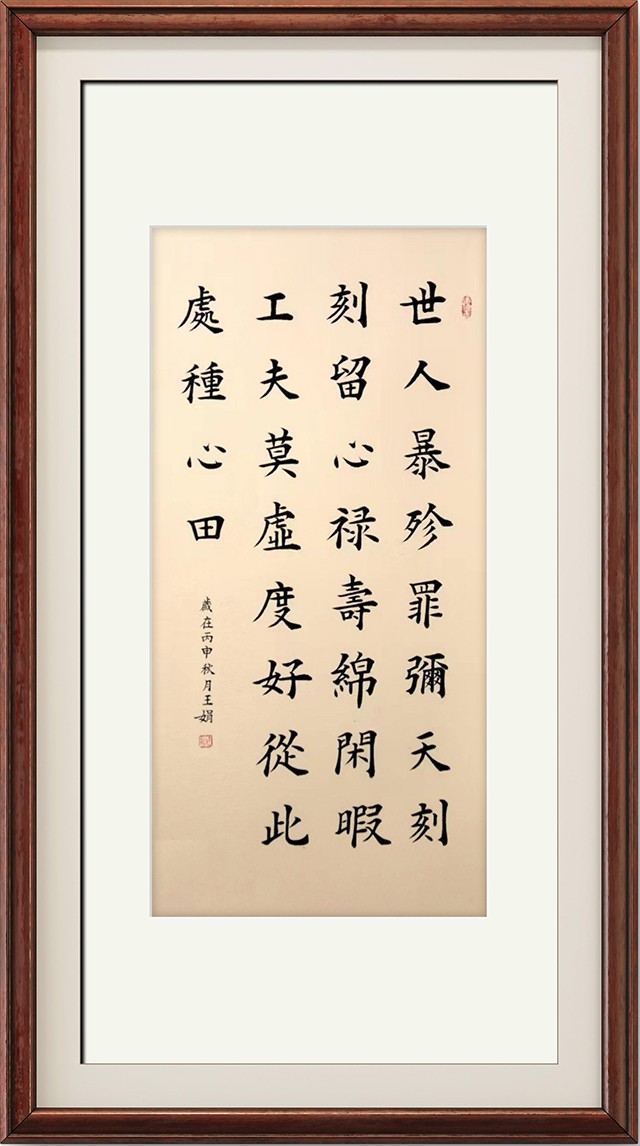 世人暴殄罪彌天刻
刻留心禄壽綿閑暇
工夫莫虛度好從此
處種心田
歲在丙申秋月王娟